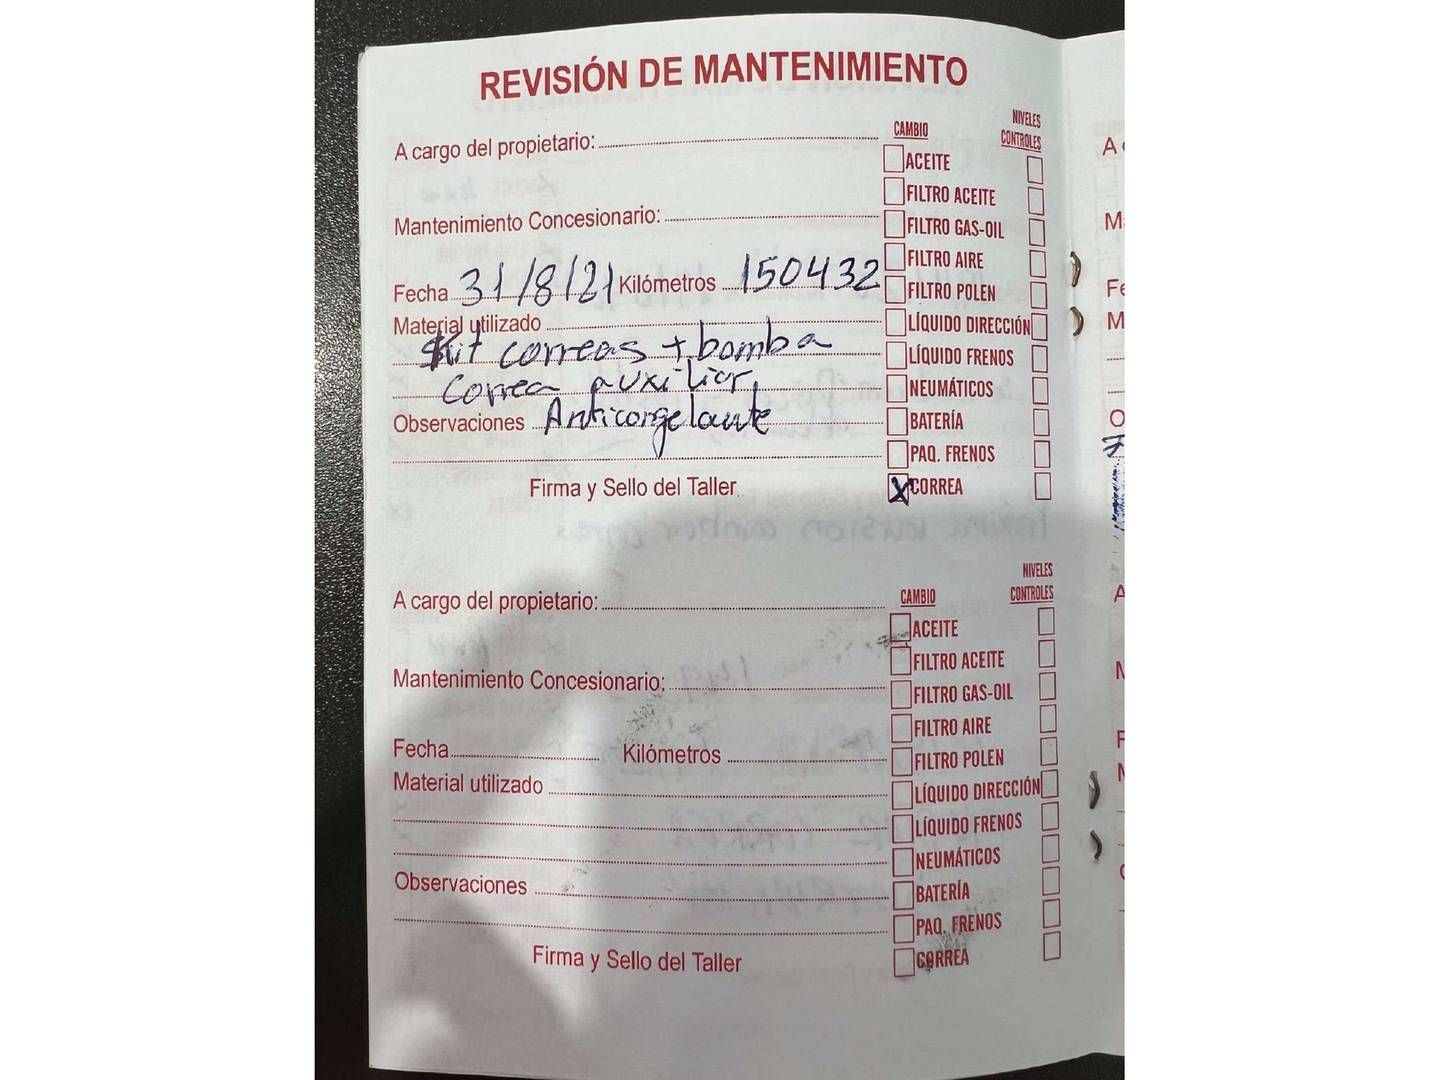 REVISIÓN DE MANTENIMIENTO
A cargo del propietario:
CAMBIO
NIVELES
CONTROLES
ACEITE
FILTRO ACEITE
Mantenimiento Concesionario:
FILTRO GAS-OIL
FILTRO AIRE
Fecha 31/8/21 Kilómetros 150432
FILTRO POLEN
Material utilizado
LÍQUIDO DIRECCIÓN
Kit correas + bomba
LÍQUIDO FRENOS
Correa auxiliar
NEUMÁTICOS
Observaciones Anticongelante
BATERÍA
PAQ. FRENOS
Firma y Sello del Taller
X CORREA
A cargo del propietario:
CAMBIO
NIVELES
CONTROLES
ACEITE
FILTRO ACEITE
Mantenimiento Concesionario:
FILTRO GAS-OIL
FILTRO AIRE
Fecha Kilómetros
FILTRO POLEN
Material utilizado
LÍQUIDO DIRECCIÓN
LÍQUIDO FRENOS
NEUMÁTICOS
Observaciones
BATERÍA
PAQ. FRENOS
Firma y Sello del Taller
CORREA